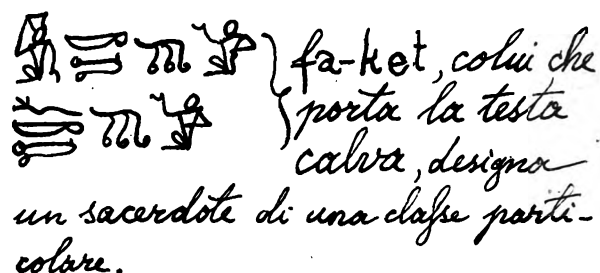 fa-ket, colui che
porta la testa
calva, designa
un sacerdote di una classe parti-
colare.